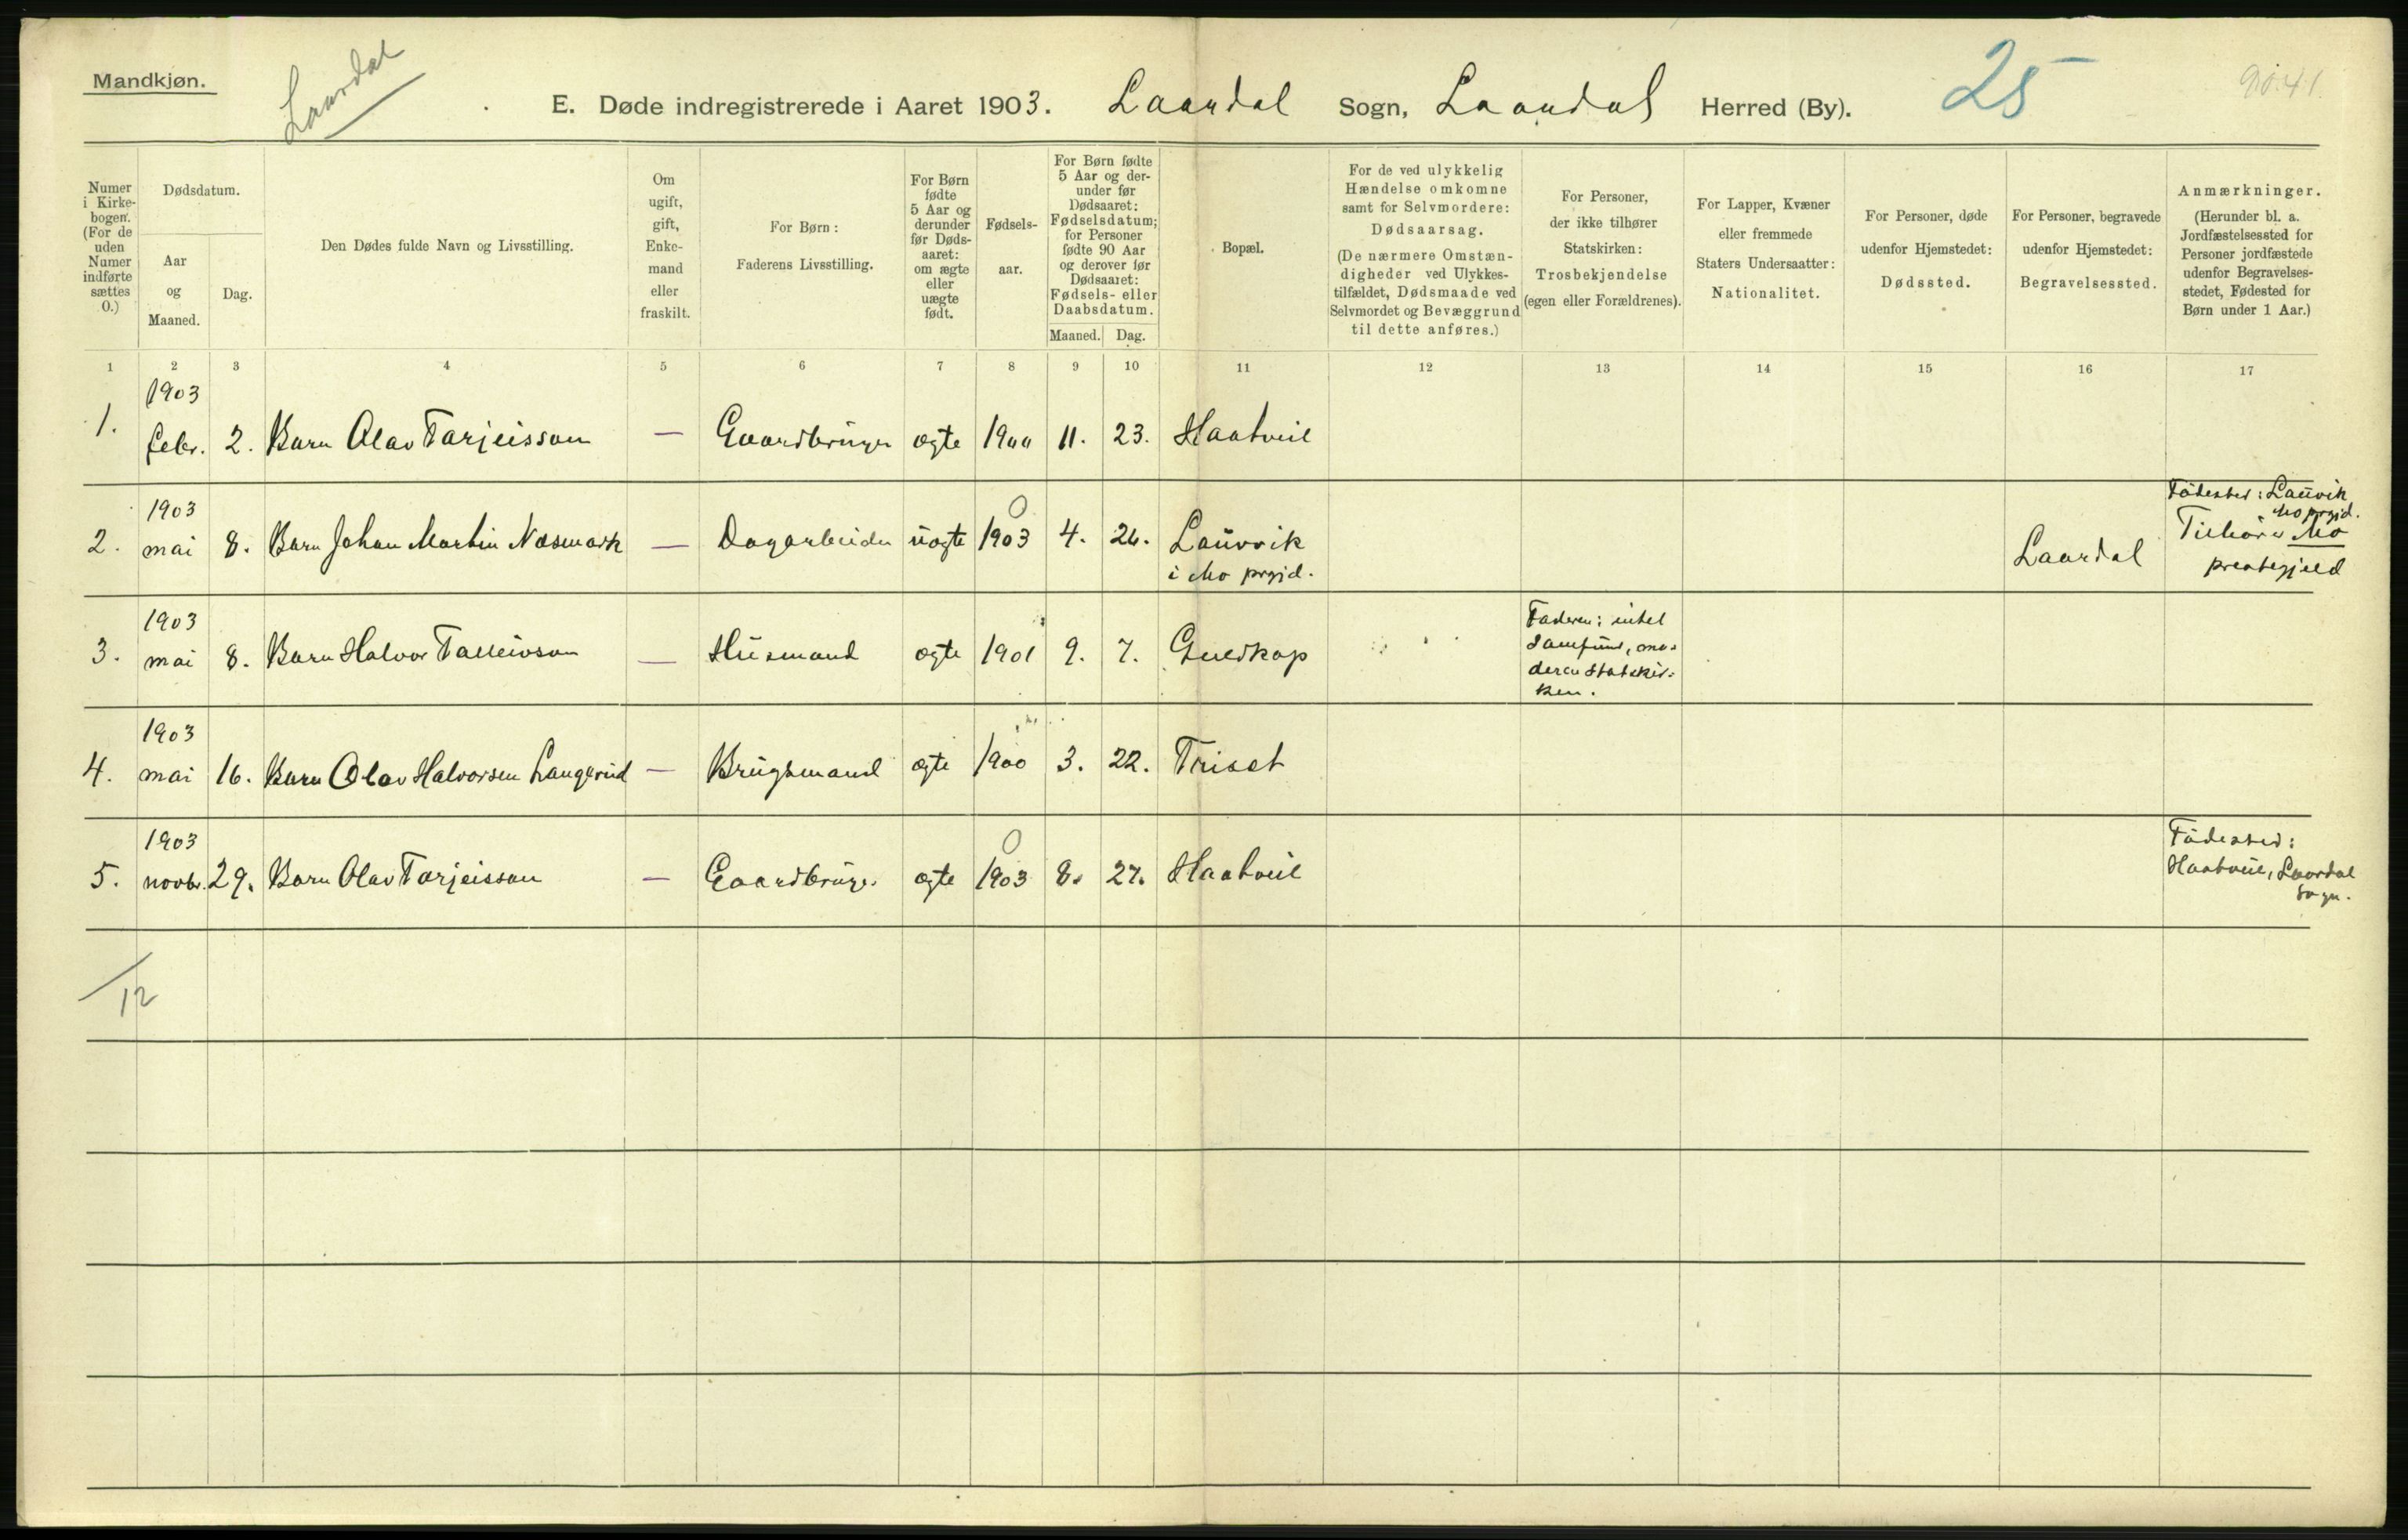 Mandkjøn.
Laardal
E. Døde indregistrerede i Aaret 1903. Laardal Sogn, Laardal Herred (By).
25
Numer
i Kirke-
bogen.
(For de
uden
Numer
indførte
sættes
0.)
Dødsdatum.
Aar
og
Maaned.
Dag.
Den Dødes fulde Navn og Livsstilling.
Om
ugift,
gift,
Enke-
mand
eller
fraskilt.
For Børn:
Faderens Livsstilling.
For Børn
fødte
5 Aar og
derunder
før Døds-
aaret:
om ægte
eller
uægte
født.
Fødsels-
aar.
For Børn fødte
5 Aar og der-
under før
Dødsaaret:
Fødselsdatum;
for Personer
fødte 90 Aar
og derover før
Dødsaaret:
Fødsels- eller
Daabsdatum.
Maaned. Dag.
Bopæl.
For de ved ulykkelig
Hændelse omkomne
samt for Selvmordere:
Dødsaarsag.
(De nærmere Omstæn-
digheder ved Ulykkes-
tilfældet, Dødsmaade ved
Selvmordet og Bevæggrund
til dette anføres.)
For Personer,
der ikke tilhører
Statskirken:
Trosbekjendelse
(egen eller Forældrenes).
For Lapper, Kvæner
eller fremmede
Staters Undersaatter:
Nationalitet.
For Personer, døde
udenfor Hjemstedet:
Dødssted.
For Personer, begravede
udenfor Hjemstedet:
Begravelsessted.
Anmærkninger.
(Herunder bl. a.
Jordfæstelsessted for
Personer jordfæstede
udenfor Begravelses-
stedet, Fødested for
Børn under 1 Aar.)
1 2 3 4 5 6 7 8 9 10 11 12 13 14 15 16 17
1903
1. febr. 2. Barn Olav Tarjeisson — Gaardbruger ægte 1900 11. 23. Haatveit
1903
2. mai 8. Barn Johan Martin Næsmark — Dagarbeider uægte 1903 4. 26. Lauvvik
i Mo prgjd.
0
Laardal
Födested: Lauvik
Mo prgjd.
Tilhörer Mo
prestegjeld
1903
3. mai 8. Barn Halvor Talleivson — Husmand ægte 1901 9. 7.
Faderen: intet
Samfund, mo-
deren Statskir-
ken.
1903
4. mai 16. Barn Olav Halvorsen Langerud — Brugsmand ægte 1900 3. 22. Triset
1903
5. novbr. 29. Barn Olav Tarjeisson — Gaardbruger ægte 1903 8. 27. Haatveit
0
Födested:
Haatveit, Laardal
Sogn.
/12